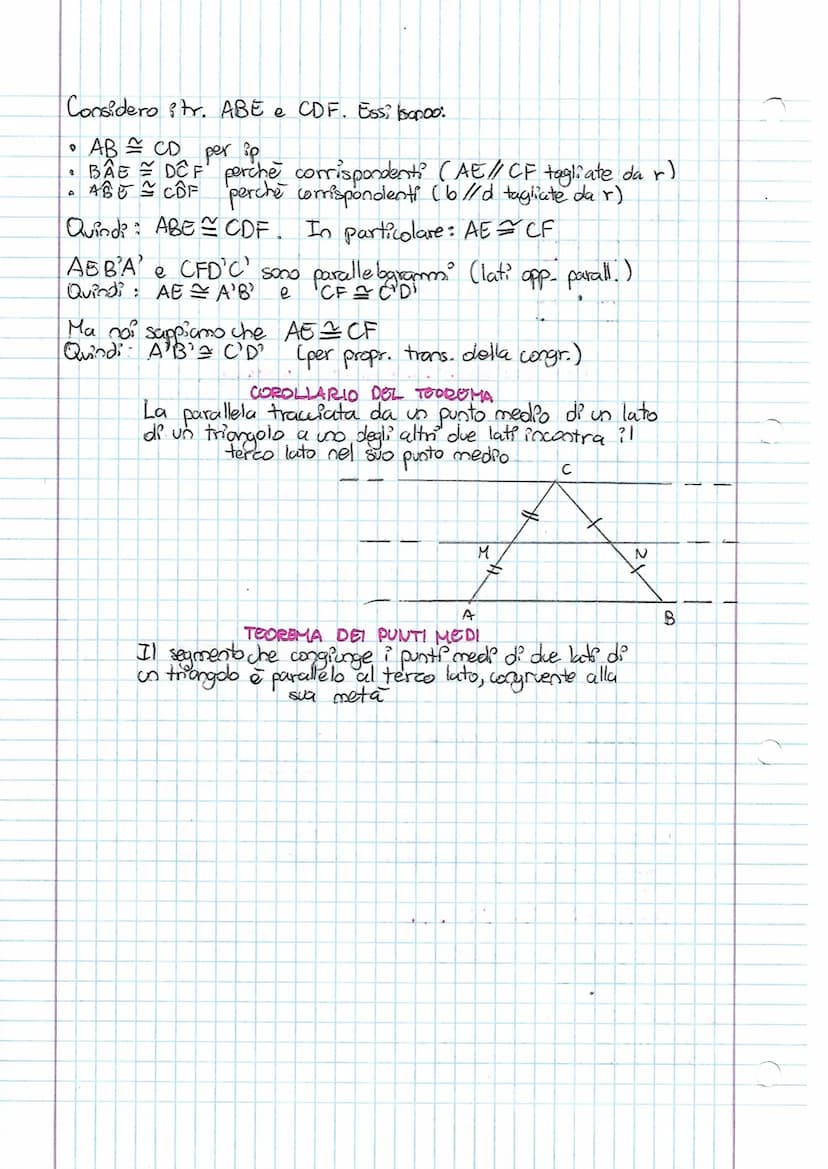 Considero i tr. ABE e CDF. Essi hanno:
• AB ≅ CD per ip
• BÂE ≅ DĈF perchè corrispondenti (AE // CF tagliate da r)
• AB̂E ≅ CD̂F perchè corrispondenti (b // d tagliate da r)
Quindi: ABE ≅ CDF. In particolare: AE ≅ CF
AEB'A' e CFD'C' sono parallelogrammi (lati opp. parall.)
Quindi: AE ≅ A'B' e CF ≅ C'D'
Ma noi sappiamo che AE ≅ CF
Quindi: A'B' ≅ C'D' (per propr. trans. della congr.)
COROLLARIO DEL TEOREMA
La parallela tracciata da un punto medio di un lato
di un triangolo a uno degli altri due lati incontra il
terzo lato nel suo punto medio
C
M N
A B
TEOREMA DEI PUNTI MEDI
Il segmento che congiunge i punti medi di due lati di
un triangolo è parallelo al terzo lato, congruente alla
sua metà